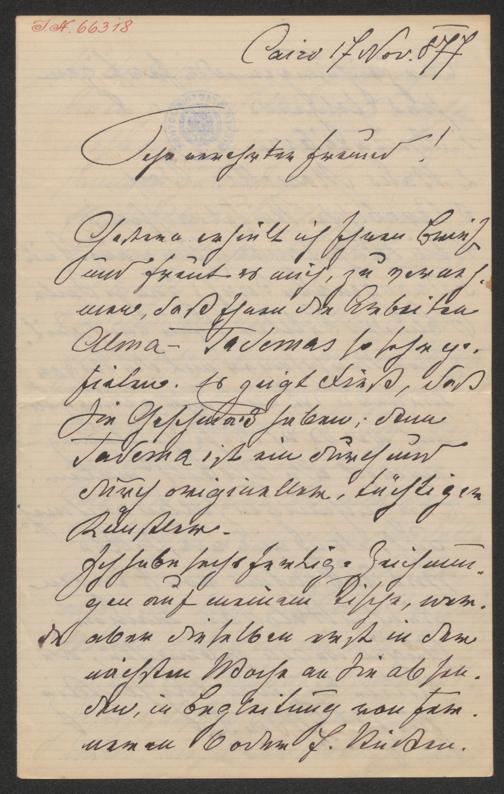 I.N. 66318
Cairo 17 Nov. 877
Sehr verehrter Freund!
Gestern erhielt ich Ihren Brief
und freut es mich, zu verneh-
men, daß Ihnen die Arbeiten
Alma-Tademas so sehr ge-
fielen. Es zeigt dieß, daß
Sie Geschmack haben; denn
Tadema ist ein durch und
durch origineller, tüchtiger
Künstler.
Ich habe sechs fertige Zeichnun-
gen auf meinem Tische, wer-
de aber dieselben erst in der
nächsten Woche an Sie absen-
den, in Begleitung von fer-
neren 6 oder 7 Stücken.